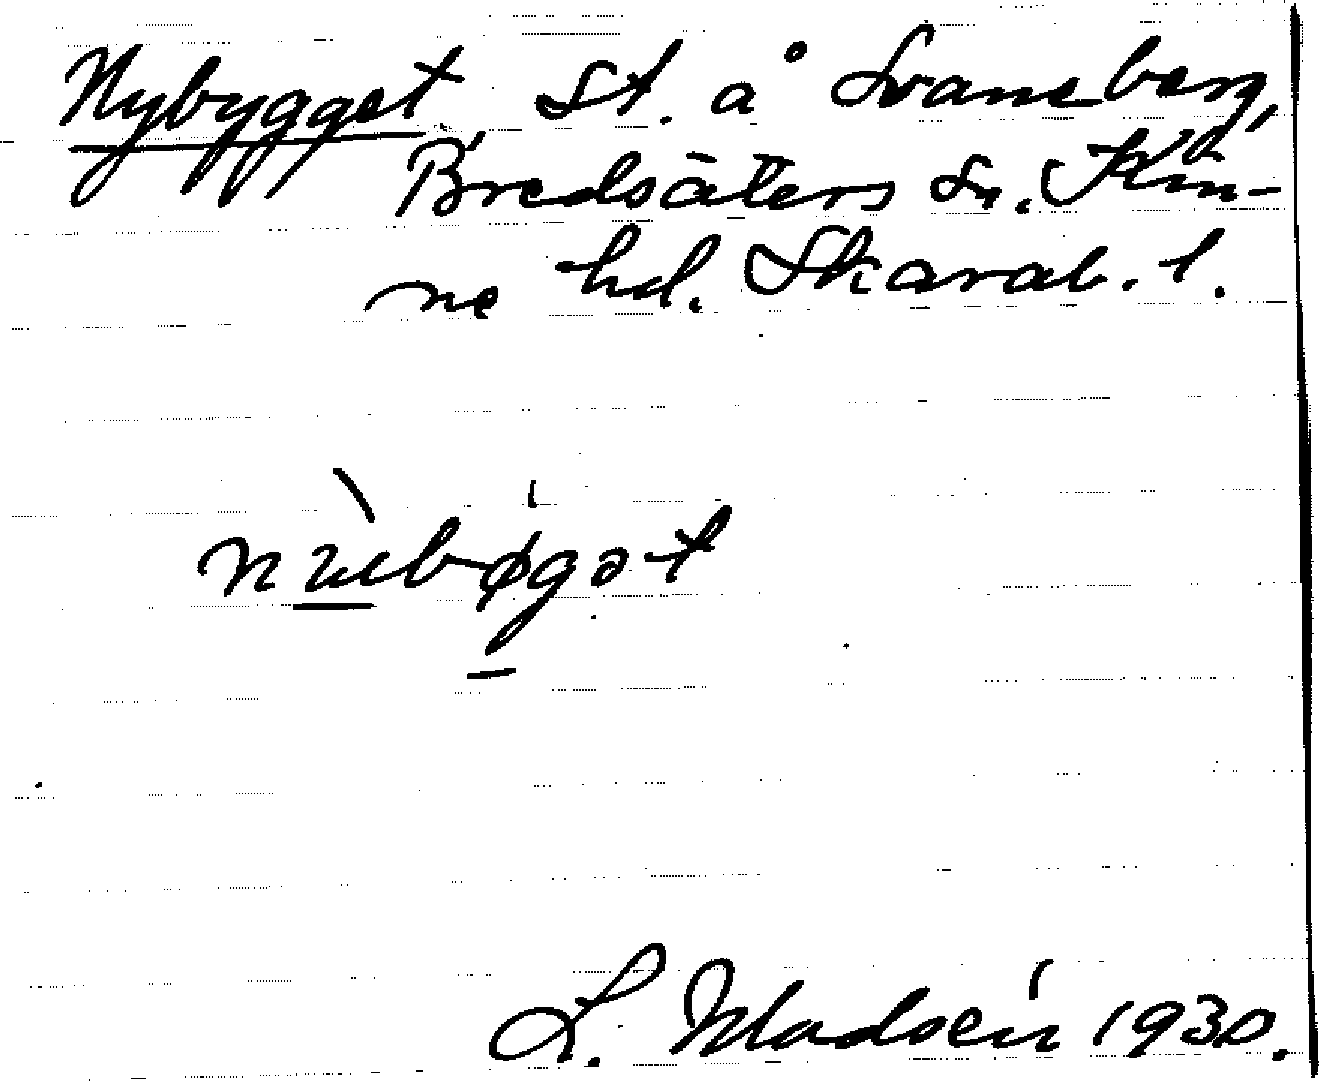 Nybygget St. å Svansberg,
Bredsäters sn. Kin-
ne hd. Skarab. l.
L. Madsén 1930.